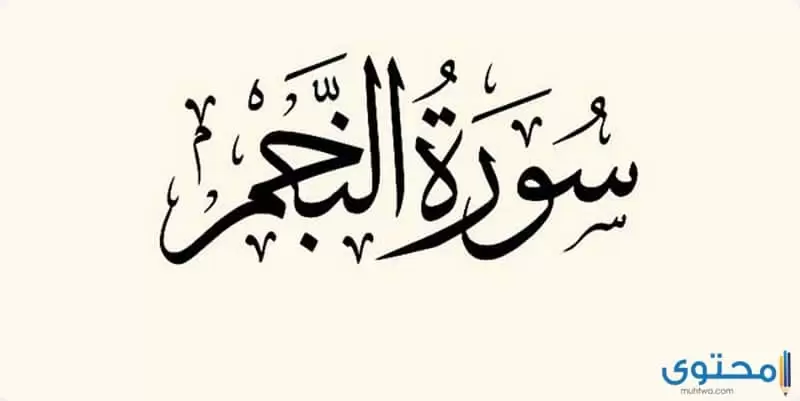 سُورَةُ النَّجْمِ
محتوى
muhtwa.com